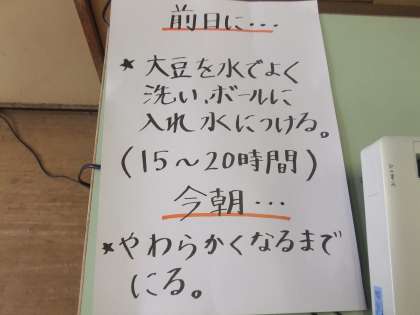 前日に…
★大豆を水でよく
洗い、ボールに
入れ水につける。
(15～20時間)
今朝…
★やわらかくなるまで
にる。